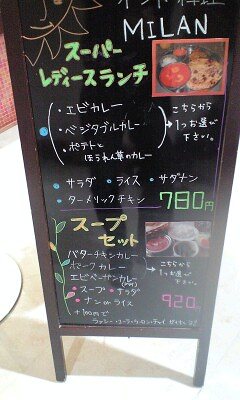 インド料理
MILAN
スーパー
レディースランチ
・エビカレー
・ベジタブルカレー
・ポテトと
ほうれん草のカレー
こちらから
1つお選び
下さい。
・サラダ ・ライス ・サダナン
・ターメリックチキン 780円
スープ
セット
バターチキンカレー
ポークカレー
エビベーガンカレー
こちらから
1つお選び
下さい
・スープ・サラダ
・ナン or ライス
920
+100円で